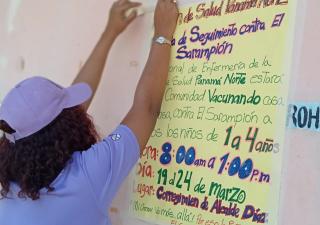 de Salud Panamá Norte
a de Seguimiento contra El
Sarampión
onal de Enfermería de la
de Salud Panamá Norte estará
Comunidad Vacunando casa
a casa contra El Sarampión a
os los niños de 1 a 4 años
Hora: 8:00am a 1:00 P.m
Día: 19 al 24 de Marzo
Lugar: Corregimiento de Alcalde Díaz
ROH